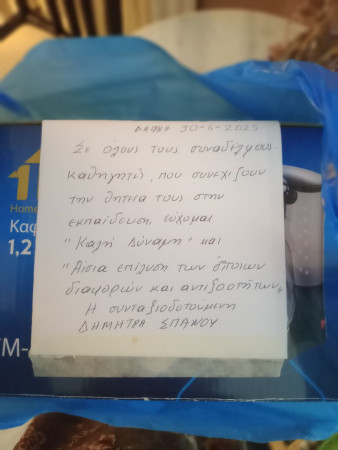 ΔΑΦΝΗ 30-6-2025
Σε όλους τους συναδέλφους
καθηγητές, που συνεχίζουν
την θητεία τους στην
εκπαίδευση, εύχομαι
"Καλή Δύναμη" και
"Αίσια επίλυση των όποιων
διαφορών και αντιξοοτήτων"
Η συνταξιοδοτούμενη
ΔΗΜΗΤΡΑ ΣΠΑΝΟΥ
Home
Καφ
1,2
M-